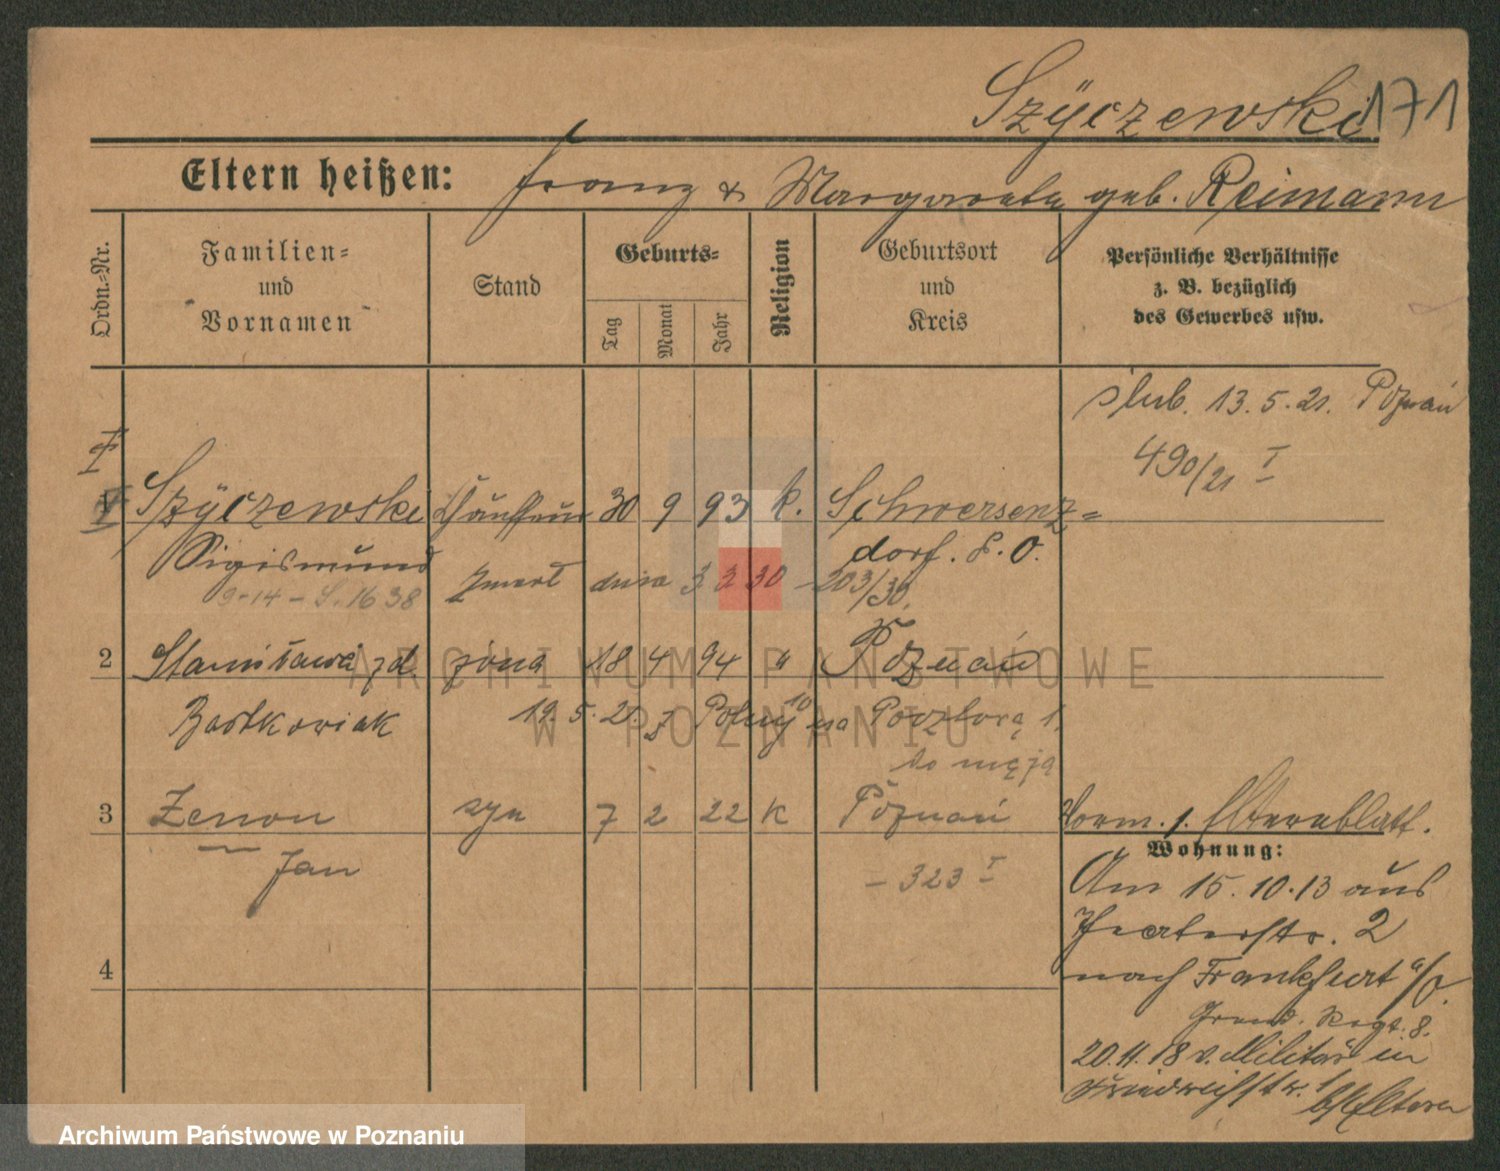 Szÿczewski 171
Eltern heißen: Franz & Margarete geb. Reimann
Ordn.-Nr.
Familien-
und
Vornamen
Stand
Geburts-
Tag
Monat
Jahr
Religion
Geburtsort
und
Kreis
Persönliche Verhältnisse
z. B. bezüglich
des Gewerbes usw.
ślub. 13.5.21. Poznań
490/21 I
Szÿczewski Chauffeur 30 9 93 k. Schwersenz-
Sigismund dorf. P. O.
9-14 – S. 1638 zmarł dnia 3 3 30 – 203/30.
2 Stanisława zd. żona 18 4 94 " Poznań
Bartkowiak 19.5.21. z Polnej 10 na Pocztową 1.
do męża
3 Zenon syn 7 2 22 k Poznań
Jan – 323 I
Vorm. 1. Elternblatt.
Wohnung:
Am 15.10.13 aus
Theaterstr. 2
nach Frankfurt a/O.
Gren. Regt. 8.
20.11.18 v. Militär in
b/Eltern
4
ARCHIWUM PAŃSTWOWE
W POZNANIU
Archiwum Państwowe w Poznaniu